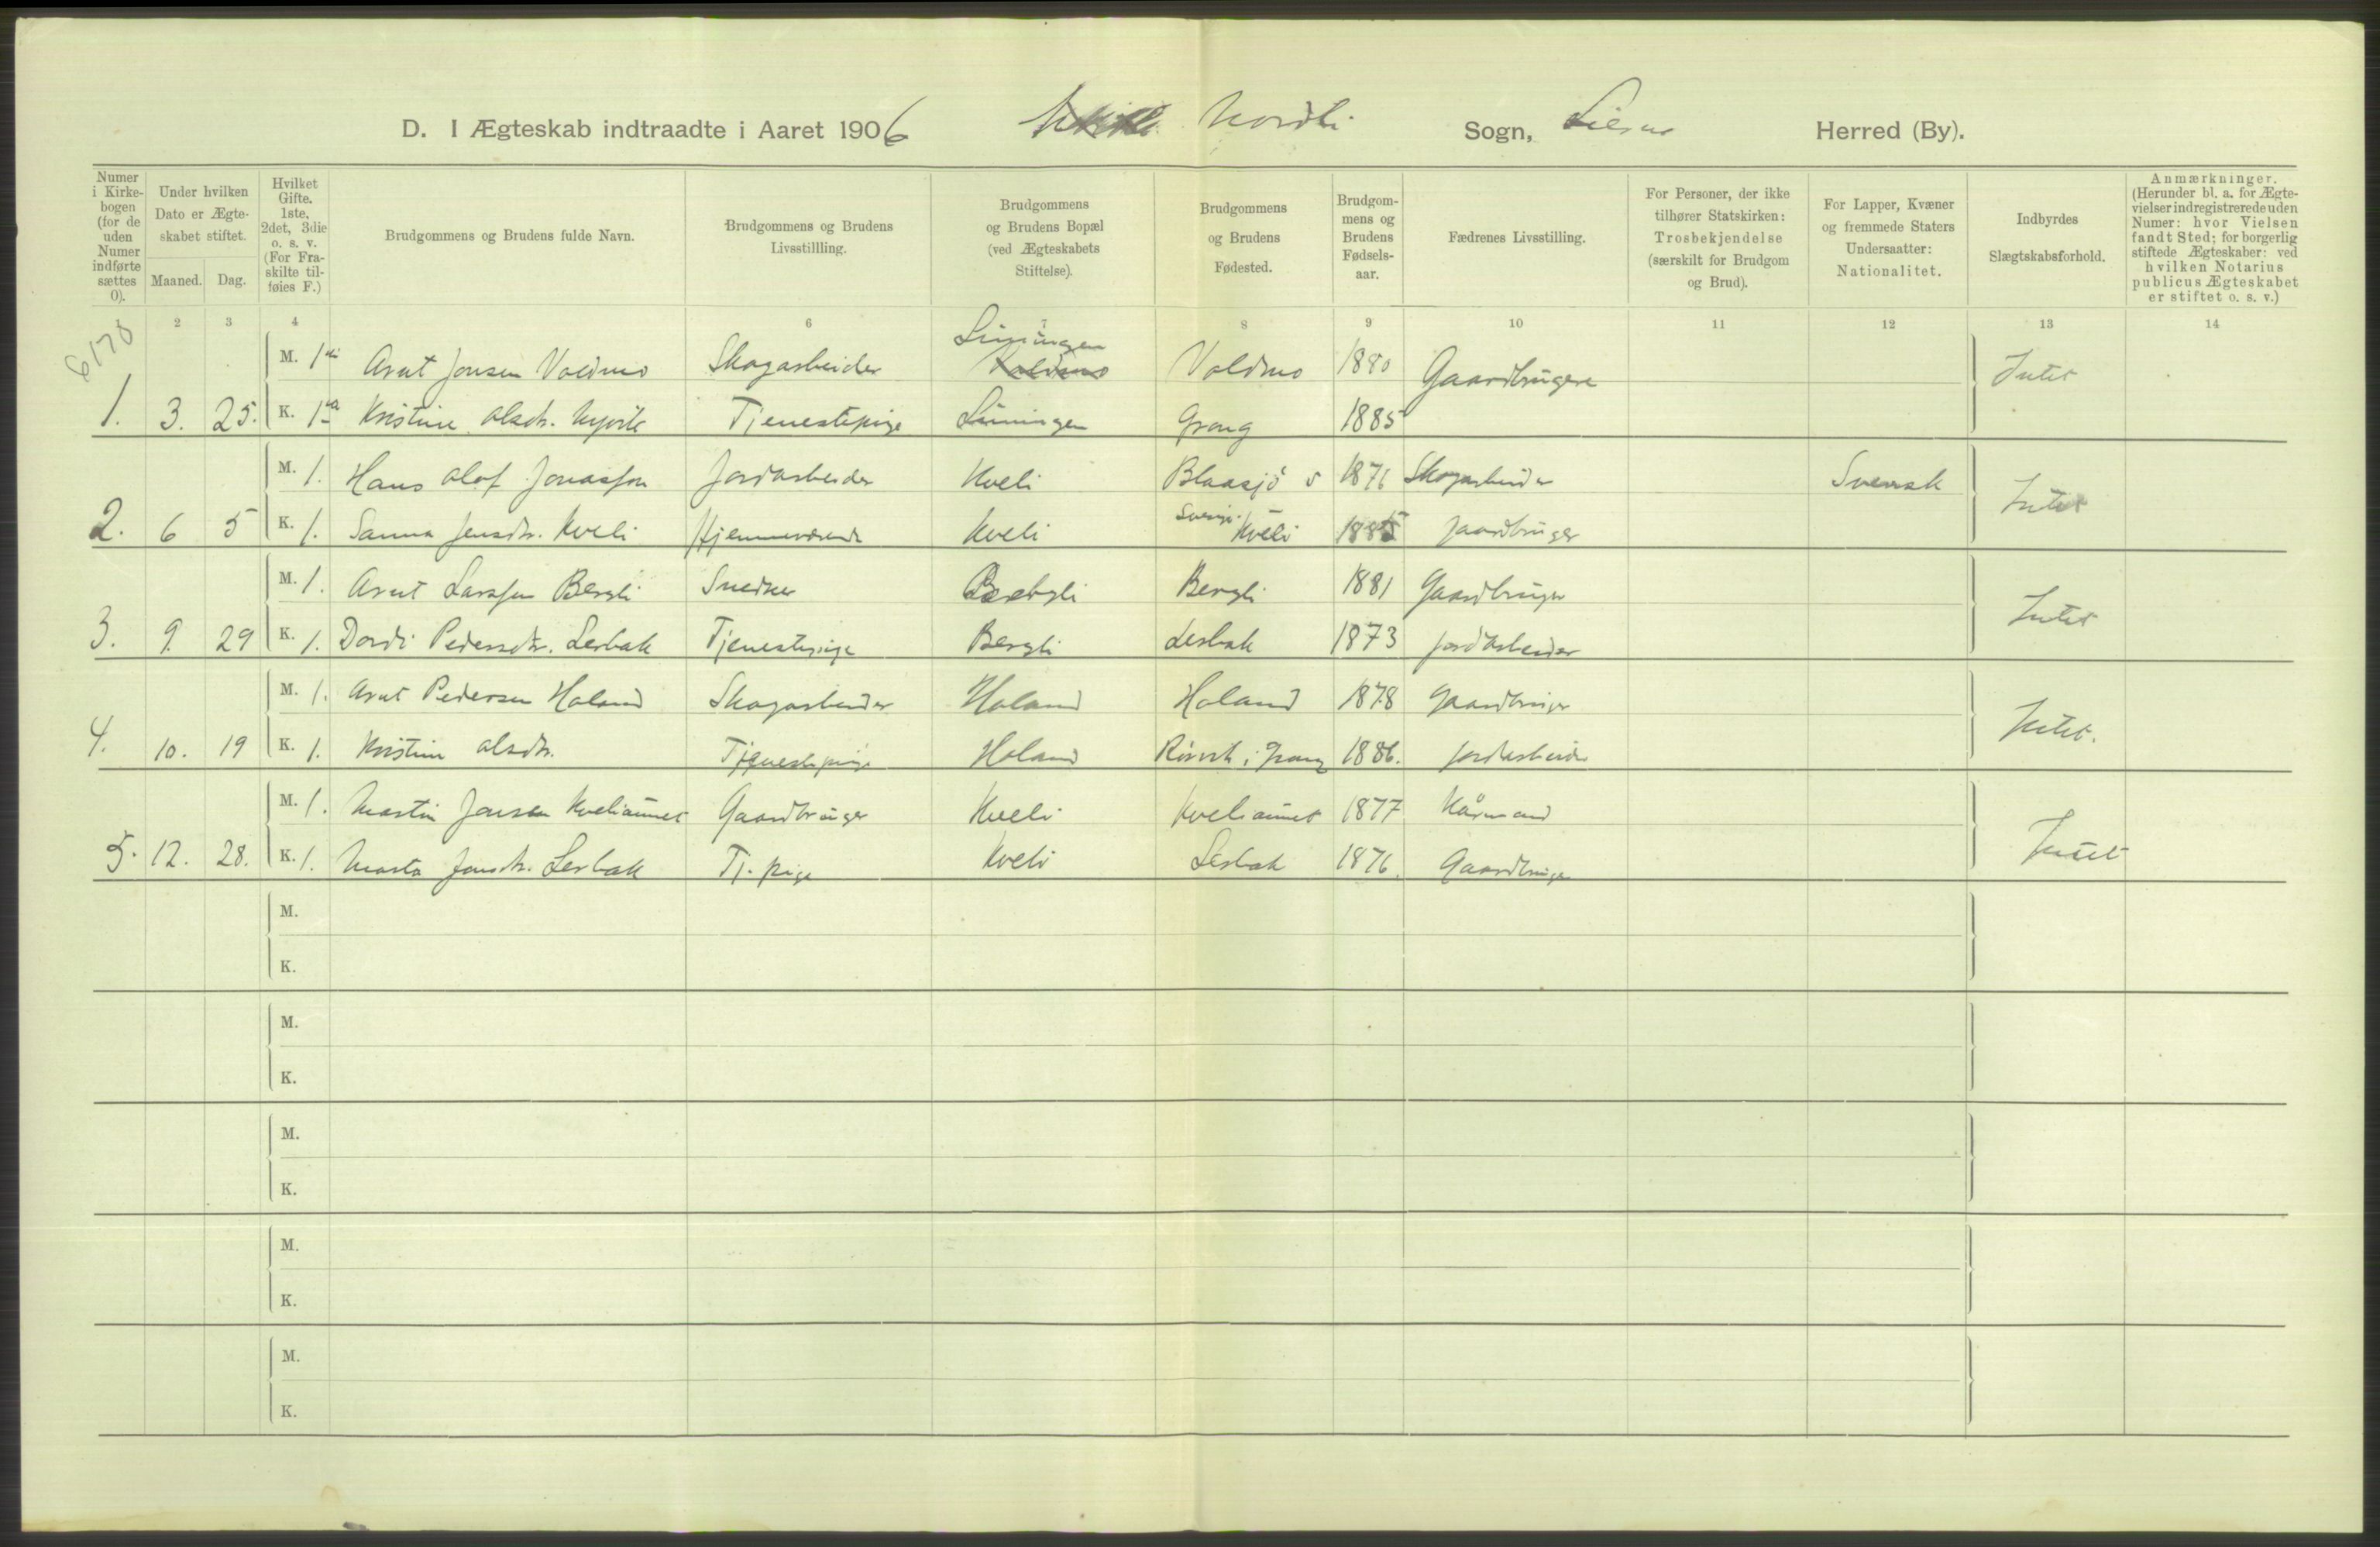 D. I Ægteskab indtraadte i Aaret 1906 Nordli Sogn, Lierne Herred (By).
Numer i Kirkebogen (for de uden Numer indførte sættes 0).
Under hvilken Dato er Ægteskabet stiftet.
Maaned. Dag.
Hvilket Gifte. 1ste, 2det, 3die o. s. v. (For Fraskilte tilføies F.)
Brudgommens og Brudens fulde Navn.
Brudgommens og Brudens Livsstillling.
Brudgommens og Brudens Bopæl (ved Ægteskabets Stiftelse).
Brudgommens og Brudens Fødested.
Brudgommens og Brudens Fødselsaar.
Fædrenes Livsstilling.
For Personer, der ikke tilhører Statskirken: Trosbekjendelse (særskilt for Brudgom og Brud).
For Lapper, Kvæner og fremmede Staters Undersaatter: Nationalitet.
Indbyrdes Slægtskabsforhold.
Anmærkninger. (Herunder bl. a. for Ægtevielser indregistrerede uden Numer: hvor Vielsen fandt Sted; for borgerlig stiftede Ægteskaber: ved hvilken Notarius publicus Ægteskabet er stiftet o. s. v.)
2 3 4 6 7 8 9 10 11 12 13 14
6170
Limingen
M. 1ste Arnt Jonsen Voldmo Skogarbeider Voldmo Voldmo 1880 Gaardbrugere Intet
1. 3. 25. K. 1ste Kristine Olsdtr. Tjenestepige Limingen Grong 1885
M. 1. Hans Olof Jonasson Jordarbeider Kveli Blaasjö 1876 Skogarbeider Svensk Intet
2. 6 5 K. 1. Sanna Jensdtr. Kveli Hjemmeværende Kveli Sverige. Kveli 1885 gaardbruger
M. 1. Arnt Larssen Bergli Snedker Bergli Bergli 1881 Gaardbruger Intet
3. 9. 29 K. 1. Dordi Pedersdtr. Lerbak Tjenestepige Bergli Lerbak 1873 jordarbeider
M. 1. Arnt Pedersen Holand Skogarbeider Holand Holand 1878 gaardbruger Intet.
4. 10. 19 K. 1. Kristine Olsdtr. Tjenestepige Holand Rörvik i Grong 1886. jordarbeider
M. 1. Martin Jensen Kveliaunet Gaardbruger Kveli Kveliaunet 1877 Kårmand Intet
5. 12. 28. K. 1. Marta Jonsdtr. Lerbak Tj. pige Kveli Lerbak 1876. Gaardbruger
M.
K.
M.
K.
M.
K.
M.
K.
M.
K.